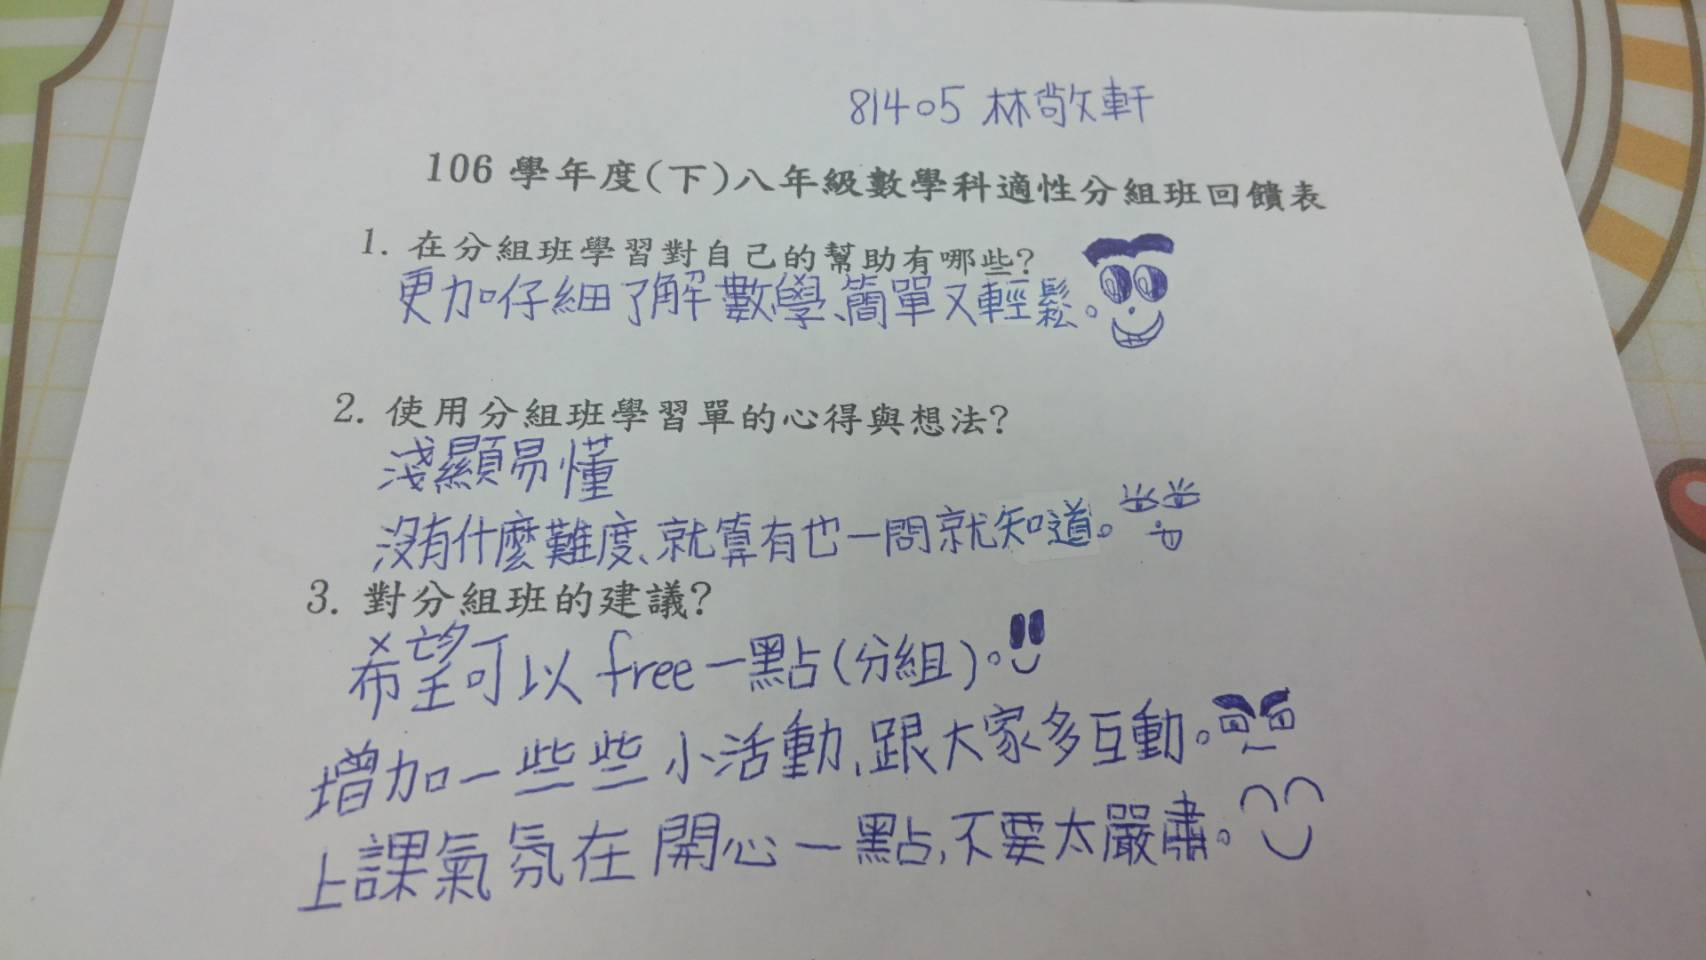 81405 林敬軒
106 學年度(下)八年級數學科適性分組班回饋表
1. 在分組班學習對自己的幫助有哪些?
更加仔細了解數學、簡單又輕鬆。
2. 使用分組班學習單的心得與想法?
淺顯易懂
沒有什麼難度、就算有也一問就知道。
3. 對分組班的建議?
希望可以 free 一點(分組)。
增加一些些小活動、跟大家多互動。
上課氣氛在開心一點,不要太嚴肅。